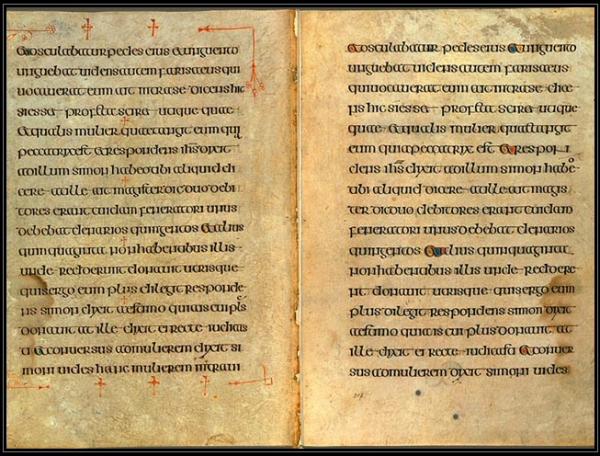 Et osculabatur pedes eius et unguento
unguebat uidens autem farisaeus qui
uocauerat eum ait intra se dicens hic
si esset profeta sciret utique quae
et qualis mulier quae tangit eum quia
peccatrix est et respondens ihs dixit
ad illum simon habeo tibi aliquid di
cere at ille ait magister dic duo debi
tores erant cuidam feneratori unus
debebat denarios quingentos et alius
quinquaginta non habentibus illis
unde redderent donauit utrisque
quis ergo eum plus dilegit responde
ns simon dixit aestimo quia is cui pls
donauit at ille dixit ei recte iudicas
ti et conuersus ad mulierem dixit si
moni uides hanc mulierem intraui
Et osculabatur pedes eius et unguento
unguebat uidens autem farisaeus
qui uocauerat eum ait intra se dice
ns hic si esset profeta sciret utique
quae et qualis mulier quae tangit
eum quia peccatrix est et respon
dens ihs dixit ad illum simon habeo
tibi aliquid dicere at ille ait magis
ter dic duo debitores erant cuidam
feneratori unus debebat denarios
quingentos et alius quinquaginta
non habentibus illis unde reddere
nt donauit utrisque quis ergo eum
plus dilegit respondens simon dixit
aestimo quia is cui plus donauit at
ille dixit ei recte iudicasti et conuer
sus ad mulierem dixit simoni uides